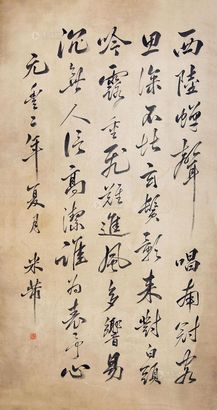 西陸蟬聲唱南冠客
思深不忮玄鬢影来對白頭
吟露重飛難進風多響易
沉無人信高潔誰為表予心
元豐二年夏月 米芾